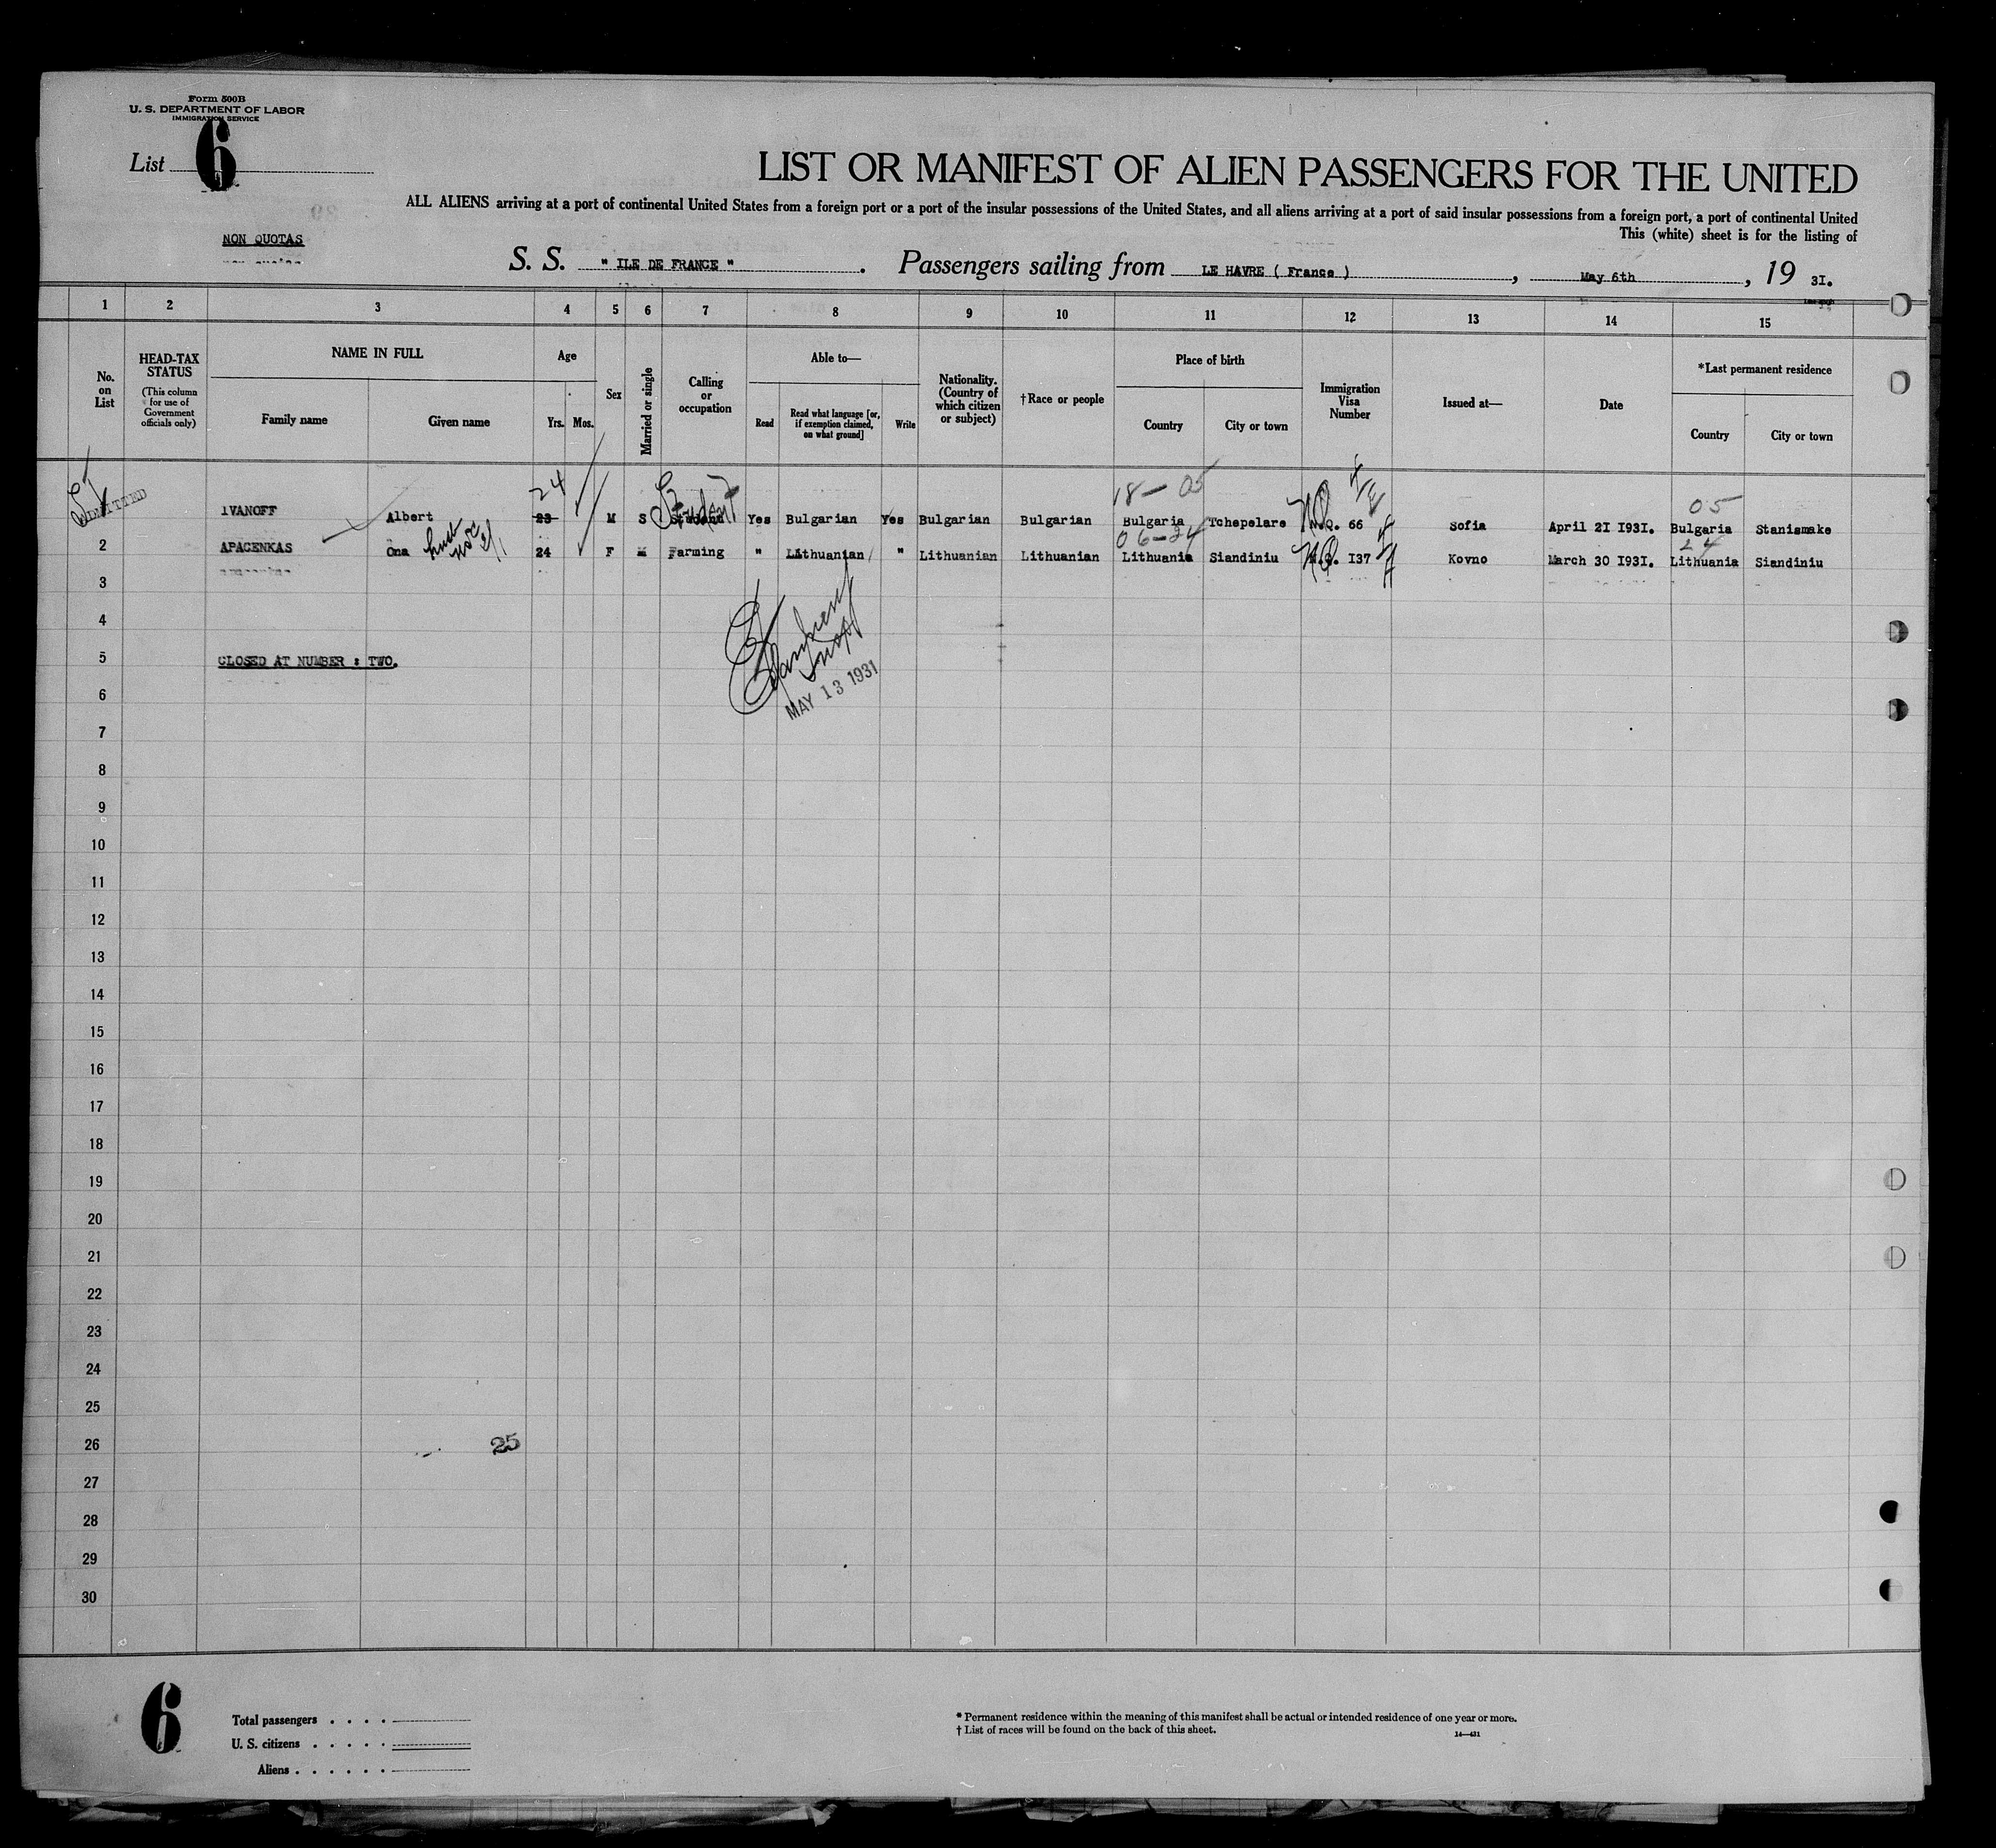 Form 500B
U. S. DEPARTMENT OF LABOR
IMMIGRATION SERVICE
List 6
LIST OR MANIFEST OF ALIEN PASSENGERS FOR THE UNITED
ALL ALIENS arriving at a port of continental United States from a foreign port or a port of the insular possessions of the United States, and all aliens arriving at a port of said insular possessions from a foreign port, a port of continental United
This (white) sheet is for the listing of
NON QUOTAS
S. S. " ILE DE FRANCE ". Passengers sailing from LE HAVRE ( France ), May 6th, 19 3I.
1 2 3 4 5 6 7 8 9 10 11 12 13 14 15
No. on List
HEAD-TAX STATUS
(This column for use of Government officials only)
NAME IN FULL
Family name Given name
Age
Yrs. Mos.
Sex
Married or single
Calling or occupation
Able to—
Read
Read what language [or, if exemption claimed, on what ground]
Write
Nationality. (Country of which citizen or subject)
†Race or people
Place of birth
Country City or town
Immigration Visa Number
Issued at—
Date
*Last permanent residence
Country City or town
ADMITTED
24 Student 18 — 05 05
IVANOFF Albert 23 M S Student Yes Bulgarian Yes Bulgarian Bulgarian Bulgaria Tchepelare N.Q. 66 Sofia April 2I I93I. Bulgaria Stanismake
06-24 24
2 APACENKAS Ona 24 F M Farming " Lithuanian " Lithuanian Lithuanian Lithuania Siandiniu N.Q. I37 Kovno March 30 I93I. Lithuania Siandiniu
3
4
5 CLOSED AT NUMBER : TWO.
6
MAY 13 1931
7
8
9
10
11
12
13
14
15
16
17
18
19
20
21
22
23
24
25
26 25
27
28
29
30
6
Total passengers . . . .
U. S. citizens . . . . .
Aliens . . . . . .
* Permanent residence within the meaning of this manifest shall be actual or intended residence of one year or more.
† List of races will be found on the back of this sheet.